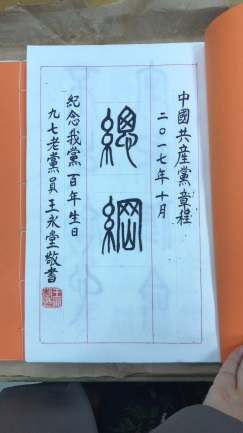 中國共産黨章程
二〇一七年十月
總綱
紀念我黨百年生日
九七老黨員王永堂敬書